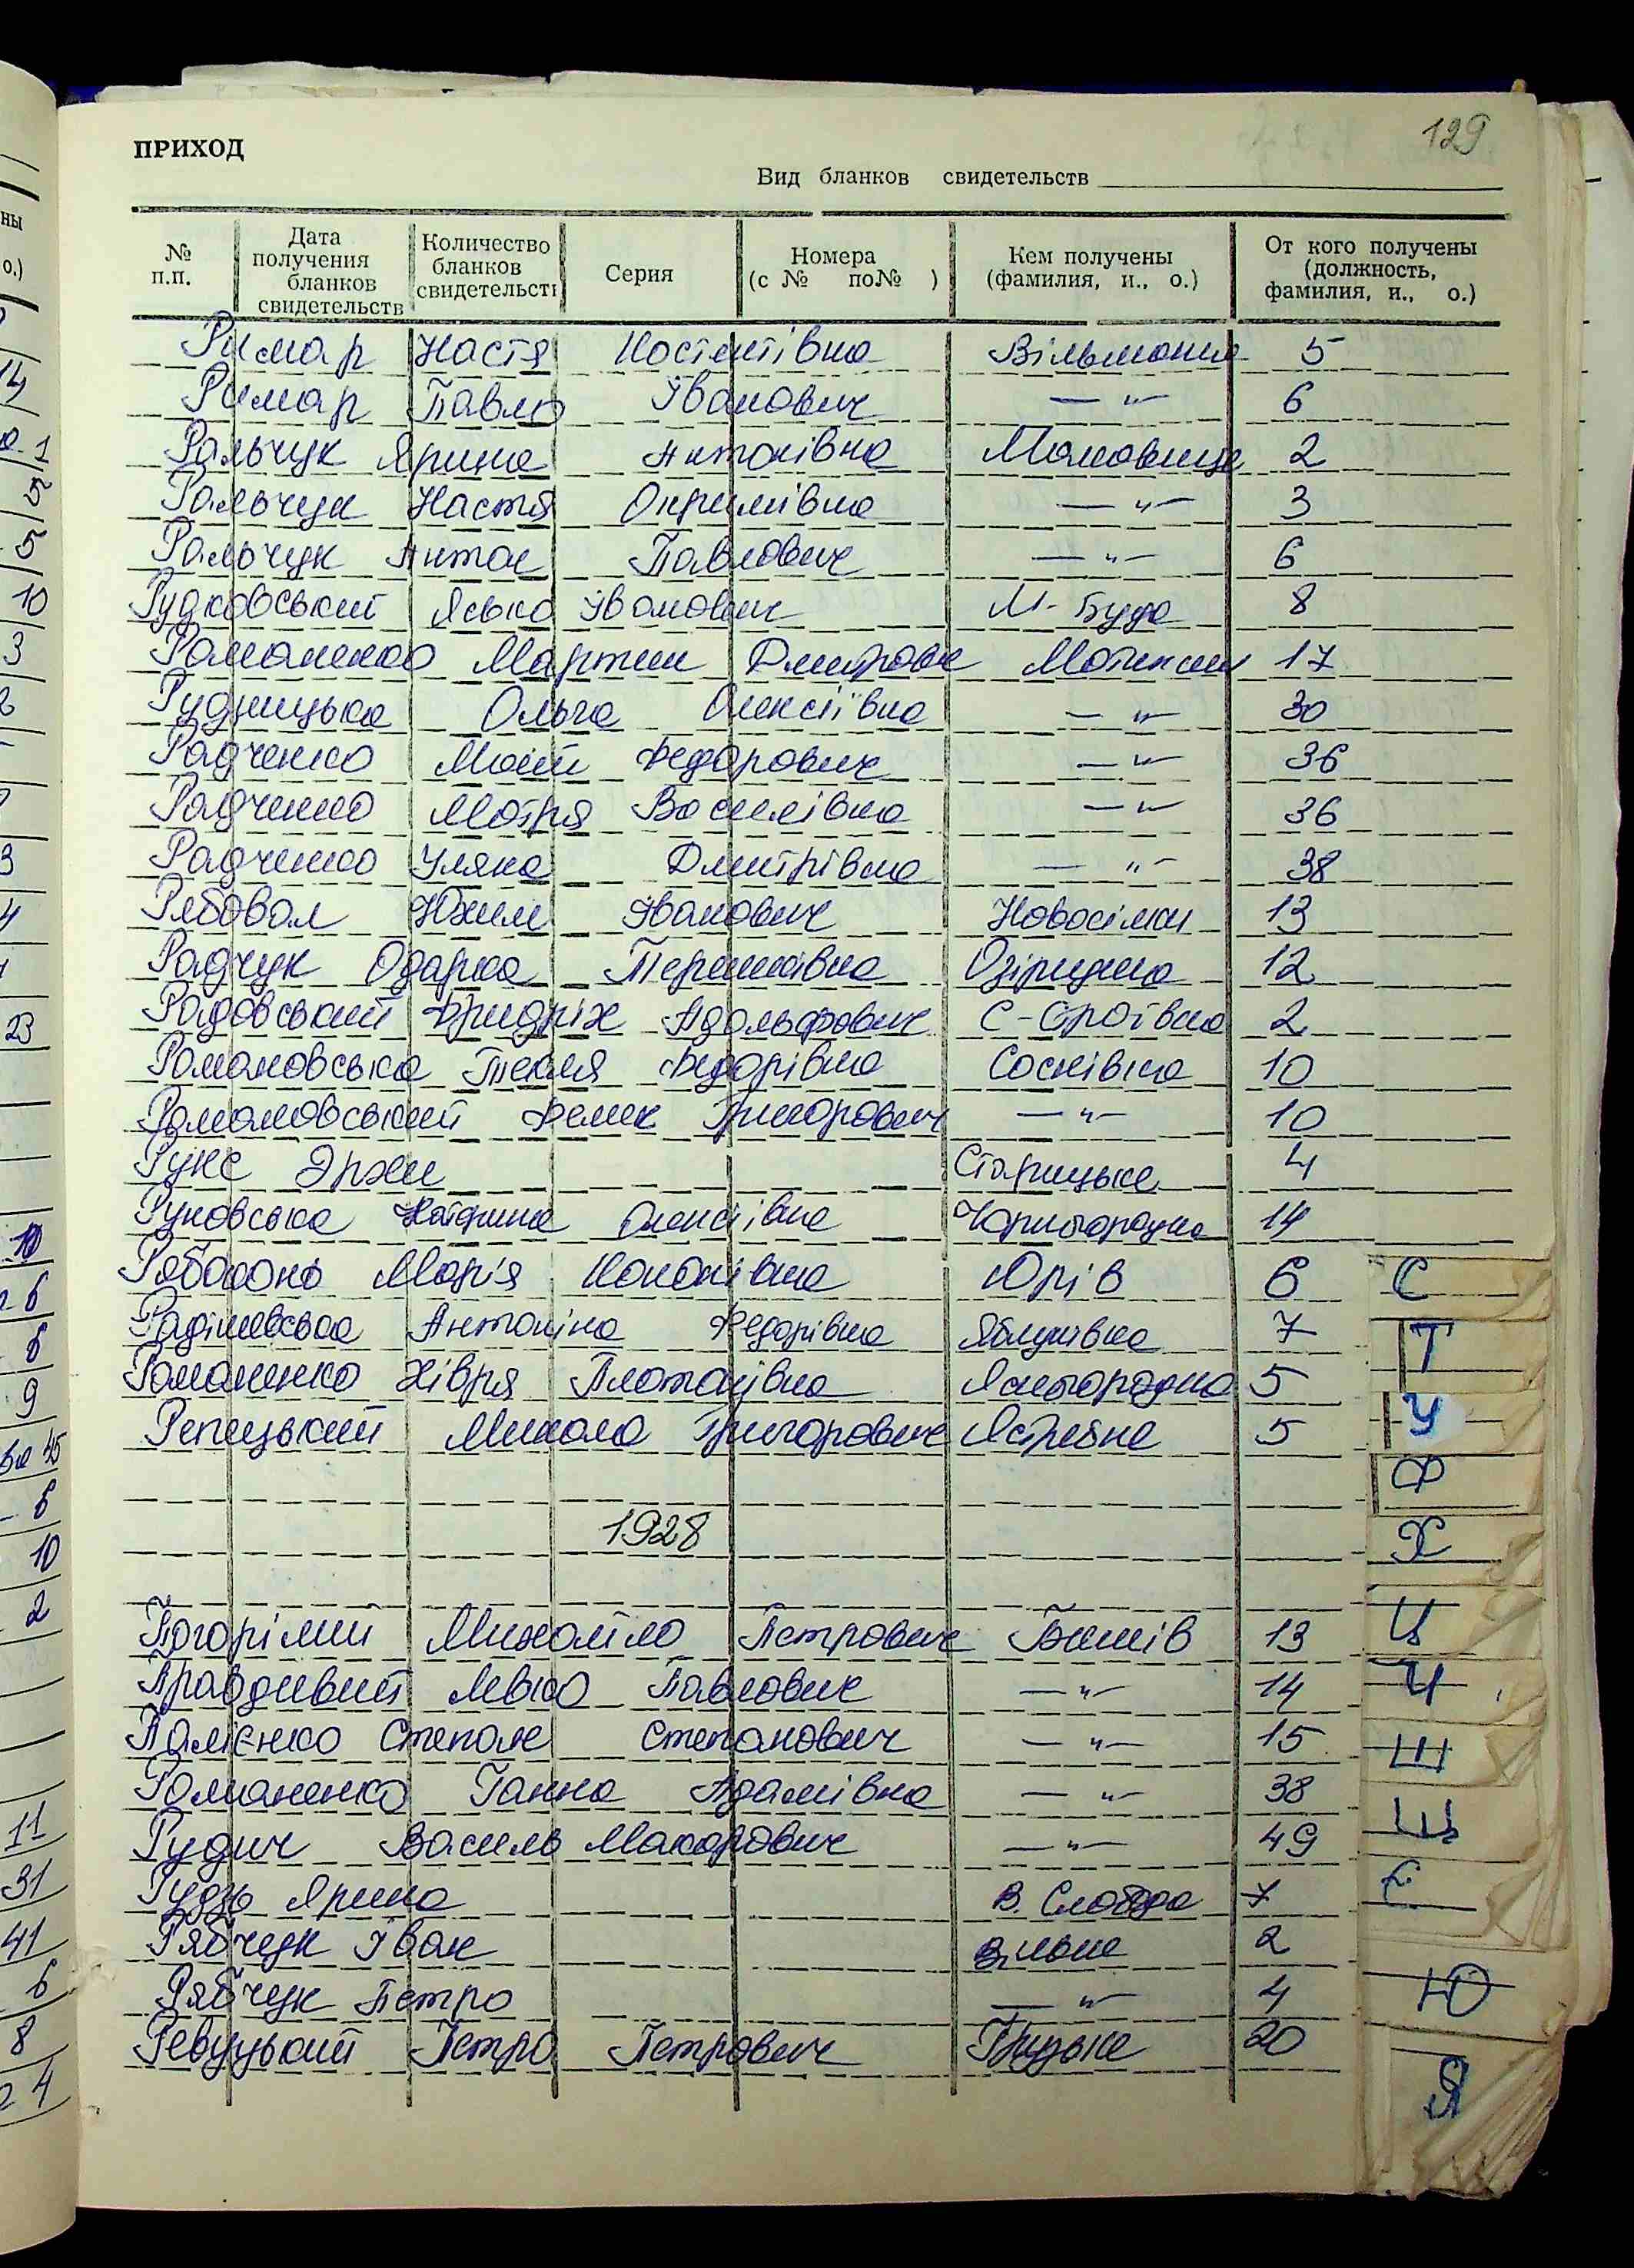 129
ПРИХОД
Вид бланков свидетельств
№ п.п. Дата получения бланков свидетельств Количество бланков свидетельств Серия Номера (с № по№ ) Кем получены (фамилия, и., о.) От кого получены (должность, фамилия, и., о.)
Римар Настя Костянтівна 5
Римар Павло Іванович — " — 6
Ральчук Ярина Антонівна 2
Ральчук Настя Охрімівна — " — 3
Ральчук Антон Павлович — " — 6
Рудковський Ясько Іванович М-Буда 8
Романенко Мартин Дмитрович Мотижин 17
Рудницька Ольга Олексіївна — " — 30
Радченко Мосій Федорович — " — 36
Радченко Мотря Василівна — " — 36
Радченко Уляна Дмитрівна — " — 38
Рябовол Юхим Іванович Новосілки 13
Радчук Одарка Озірщина 12
Радовський Фридріх Адольфович 2
Романовська Текля Федорівна Соснівка 10
Романовський Григорович — " — 10
Рукс Старицька 4
Руковська Катерина Олексіївна Чорногородка 14
Рябоконь Марія Кононівна Юрів 6
Радішевська Антоніна Федорівна Яблунівка 7
Романенко Хівря Платонівна Ясногородка 5
Репецький Микола Григорович Ястребна 5
1928
Погорілий Михайло Петрович Бишів 13
Правдивий Левко Павлович — " — 14
Палієнко Степан Степанович — " — 15
Романенко Ганна Адамівна — " — 38
Рудич Василь Макарович — " — 49
Рудзь Ярина В. Слобода 7
Рябчук Іван Вільне 2
Рябчук Петро — " — 4
Ревуцький Петро Петрович Грузьке 20
С
Т
У
Ф
Х
Ц
Ч
Ш
Щ
Є
Ю
Я